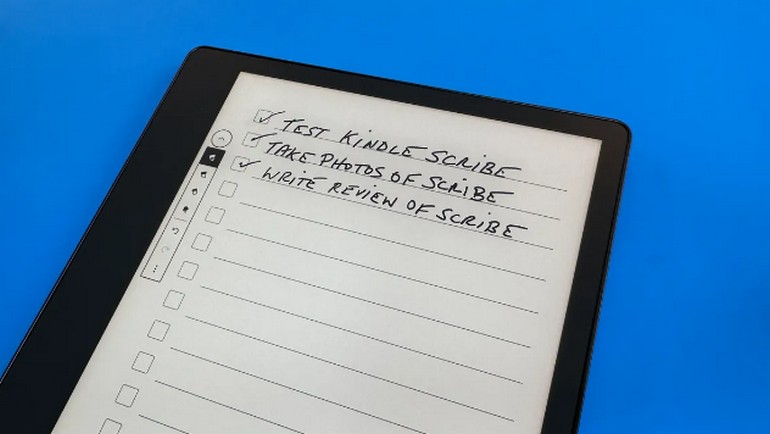 TEST KINDLE SCRIBE
TAKE PHOTOS OF SCRIBE
WRITE REVIEW OF SCRIBE